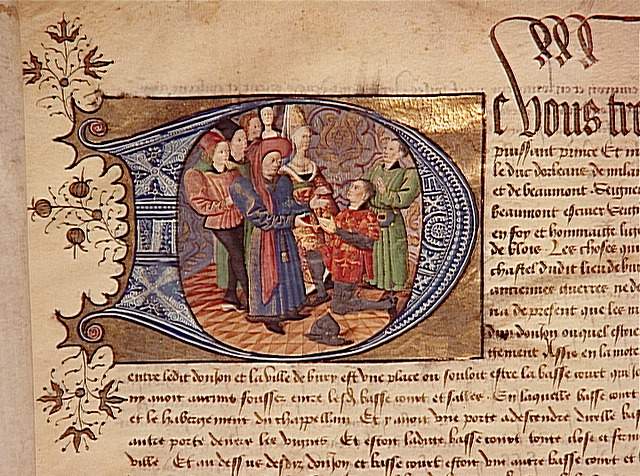 vous tr
puissant prince Et m
le duc dorleans de milan
et de beaumont Seign
beaumont escuier Seign
en foy et hommaige lige
de blois. Les choses qui
chastel dudit lieu de bury
anciennes guerres ne de
na de present que les m
donjon ouquel estoi
Assis en la mote
entre ledit donjon et la ville de bury est vne place ou souloit estre la basse court
ny auoit aucuns fossez entre lesd basse court et salles. En laquelle basse court
et le habergement du chappellain Et y auoit vne porte a descendre dicelle
autre porte deuers les vignes, Et estoit ladicte basse court toute close a
ville, Et au dessus desdiz donjon et basse court estoit vne autre basse court et